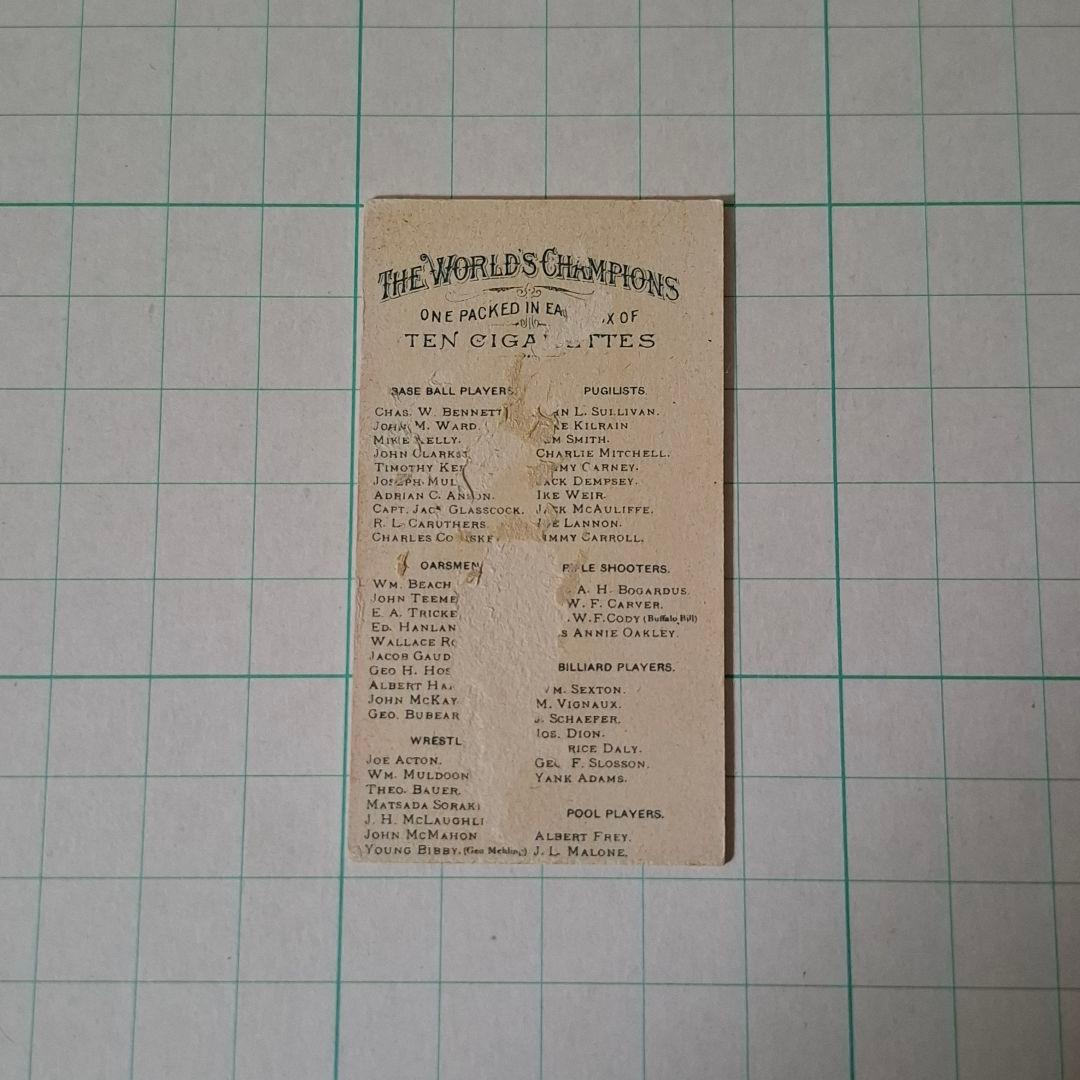 THE WORLD'S CHAMPIONS
ONE PACKED IN OF
TEN
BASE BALL PLAYERS.
CHAS. W. BENNETT
JOHN M. WARD.
MIKE KELLY.
JOHN
TIMOTHY
JOSEPH
ADRIAN C. ANSON.
CAPT. JACK GLASSCOCK.
R. L. CARUTHERS.
CHARLES
OARSMEN
WM. BEACH
JOHN
E. A.
ED. HANLAN
WALLACE
JACOB
GEO H.
ALBERT
JOHN McKAY
GEO. BUBEAR
JOE ACTON.
WM. MULDOON
THEO. BAUER.
MATSADA
J. H.
JOHN McMAHON
YOUNG BIBBY. (Geo Mehling)
PUGILISTS.
L. SULLIVAN.
KILRAIN
SMITH.
CHARLIE MITCHELL.
CARNEY.
JACK DEMPSEY.
IKE WEIR.
JACK McAULIFFE.
JOE LANNON.
JIMMY CARROLL.
RIFLE SHOOTERS.
A. H. BOGARDUS.
W. F. CARVER.
W.F.CODY (Buffalo Bill)
ANNIE OAKLEY.
BILLIARD PLAYERS.
WM. SEXTON.
M. VIGNAUX.
J. SCHAEFER.
JOS. DION.
DALY.
GEO F. SLOSSON.
YANK ADAMS.
POOL PLAYERS.
ALBERT FREY.
J. L. MALONE.